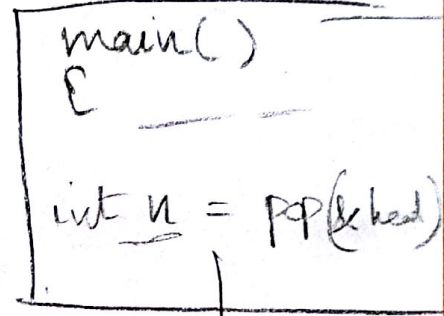 main()
{
int n = pop(&head)